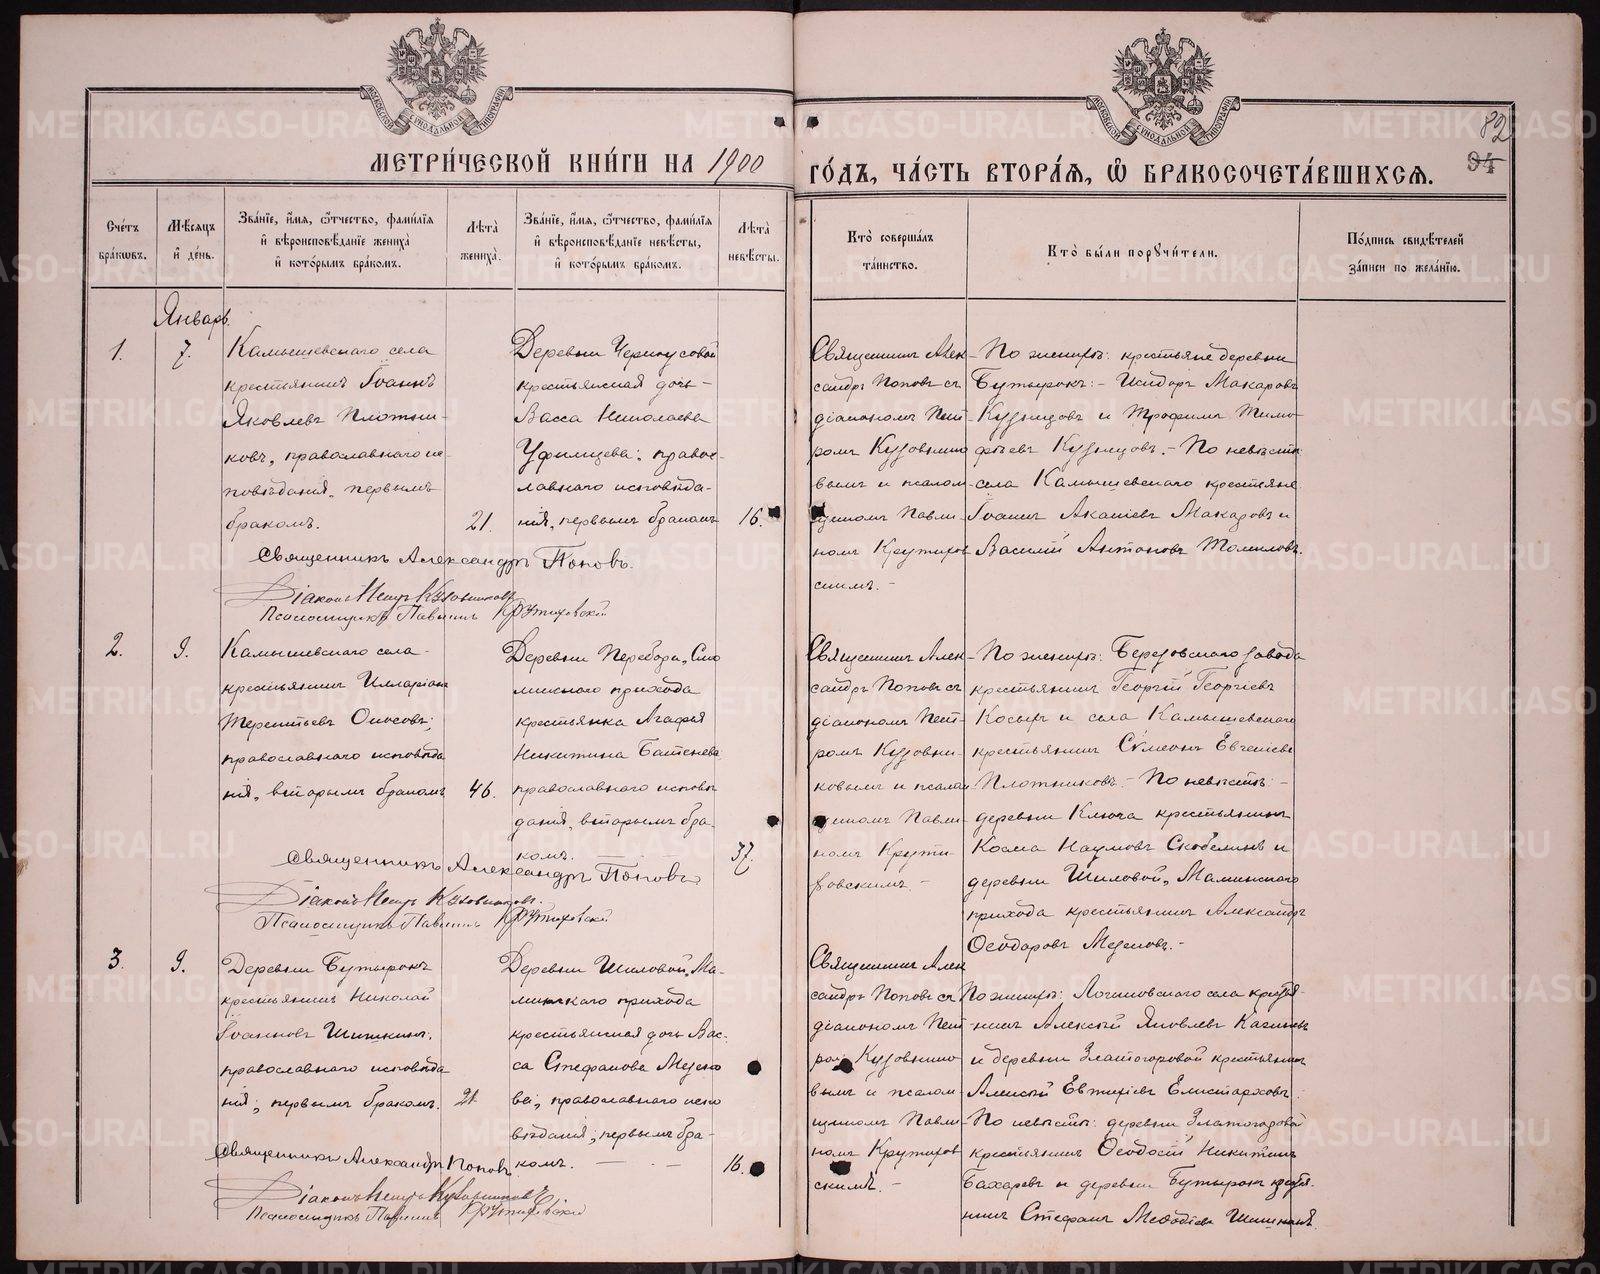 МЕТРИ́ЧЕСКОЙ КНИ́ГИ НА 1900
ГО́ДЪ, ЧА́СТЬ ВТОРА́Ѧ, Ѽ БРАКОСОЧЕТА́ВШИХСѦ.
82
94
Сче́тъ бра́кωвъ.
Мѣ́сѧцъ и҆ де́нь.
Зва́нїе, и҆́мѧ, ѻ҆́тчество, фами́лїѧ и҆ вѣроисповѣ́данїе жениха̀ и҆ кото́рымъ бра́комъ.
Лѣ́та жениха̀.
Зва́нїе, и҆́мѧ, ѻ҆́тчество, фами́лїѧ и҆ вѣроисповѣ́данїе невѣ́сты, и҆ кото́рымъ бра́комъ.
Лѣ́та невѣ́сты.
Кто̀ соверша́лъ та́инство.
Кто̀ бы́ли порꙋчи́тели.
По́дпись свидѣ́телей за́писи по жела́нїю.
Январь.
1.
7.
Камышевскаго села
крестьянинъ Іоаннъ
Яковлевъ Плотни-
ковъ, православнаго ис-
повѣданія, первымъ
бракомъ.
21.
Деревни Черноусовой
крестьянская дочь -
Васса Николаева
Уфимцева; правос-
лавнаго исповѣда-
нія, первымъ бракомъ
16.
Священникъ Алек-
сандръ Поповъ съ
діакономъ Пет-
ромъ Кузовнико-
вымъ и псалом-
щикомъ Павли-
номъ Крутихов-
скимъ. -
По женихѣ: крестьяне деревни
Бутырокъ: - Исидоръ Макаровъ
Кузнецовъ и Трофимъ Тимо-
феевъ Кузнецовъ. - По невѣстѣ:
села Камышевскаго крестьяне
Іоаннъ Акакіевъ Макаровъ и
Василій Антоновъ Томиловъ.
Священникъ Александръ Поповъ.
Діаконъ Петръ Кузовниковъ
Псаломщикъ Павлинъ Крутиховскій
2.
9.
Камышевскаго села -
крестьянинъ Илларіонъ
Терентьевъ Оносовъ;
православнаго исповѣда
нія, вторымъ бракомъ
46.
Деревни Перебора, Смо
линскаго прихода
крестьянка Агафья
Никитина Батенева
православнаго исповѣ
данія, вторымъ бра-
комъ.
37.
Священникъ Алек-
сандръ Поповъ съ
діакономъ Пет-
ромъ Кузовни-
ковымъ и псалом
щикомъ Павли-
номъ Крути-
ховскимъ. -
По женихѣ: Березовскаго завода
крестьянинъ Георгій Георгіевъ
Косыхъ и села Камышевскаго
крестьянинъ Сѵмеонъ Евгеніевъ
Плотниковъ. - По невѣстѣ: -
деревни Ключа крестьянинъ
Косма Наумовъ Скобелинъ и
деревни Шиловой, Маминскаго
прихода крестьянинъ Александръ
Ѳеодоровъ Мезеновъ. -
Священникъ Александръ Поповъ
Діаконъ Петръ Кузовниковъ.
Псаломщикъ Павлинъ Крутиховскій
3.
9.
Деревни Бутырокъ
крестьянинъ Николай
Іоанновъ Шишкинъ;
православнаго исповѣда
нія; первымъ бракомъ.
21
Деревни Шиловой, Ма-
минскаго прихода
крестьянская дочь Вас-
са Стефанова Мезено
ва, православнаго испо
вѣданія; первымъ бра-
комъ.
16.
Священникъ Алек
сандръ Поповъ съ
діакономъ Пет
ромъ Кузовнико-
вымъ и псалом-
щикомъ Павли-
номъ Крутихов
скимъ. -
По женихѣ: Логиновскаго села крестья-
нинъ Алексѣй Яковлевъ
и деревни Златогоровой крестьянинъ
Алексѣй Евтихіевъ Елистарховъ.
По невѣстѣ: деревни Златогоровой
крестьянинъ Ѳеодосій Никитинъ
Бахаревъ и деревни Бутырокъ крестья-
нинъ Стефанъ Меѳодіевъ Шишкинъ.
Священникъ Александръ Поповъ
Діаконъ Петръ Кузовниковъ
Псаломщикъ Павлинъ Крутиховскій